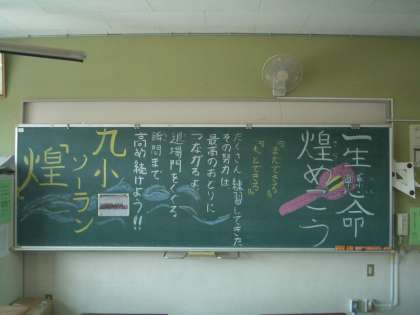 一生懸命
煌めこう
"まだできる"
"もっとできる"
たくさん練習してきた
その努力は
最高のおどりに
つながるよ
退場門をくぐる
瞬間まで
高め続けよう!!
九小
ソーラン
「煌」